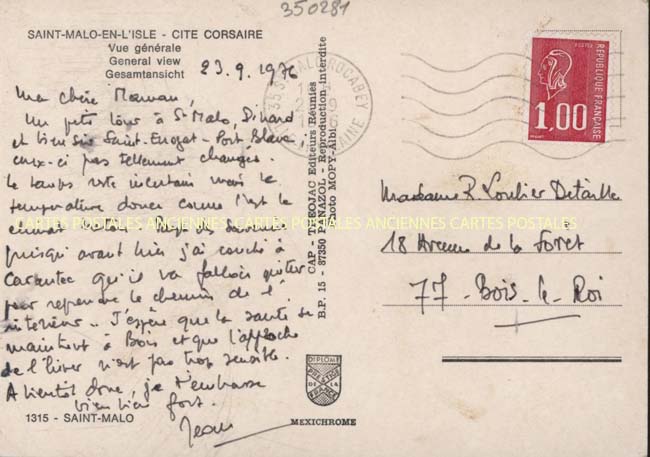 350281
SAINT-MALO-EN-L'ISLE - CITE CORSAIRE
Vue générale
General view
Gesamtansicht
23.9.1976
Ma chère Maman,
Un petit à St Malo, Dinard
et bien sûr Saint-Enogat - Port Blanc,
ceux-ci pas tellement changés.
Le temps reste incertain mais la
température douce comme l'est le
climat
puisqu' avant hier j'ai couché à
Carantec qu'il va falloir quitter
pour reprendre le chemin de l'
intérieur.. J'espère que la santé se
maintient à Bois et que l'approche
de l'hiver n'est pas trop sensible.
A bientôt donc, je t'embrasse
bien bien fort.
Jean
1315 - SAINT-MALO
CAP - THEOJAC Editeurs Réunies
B.P. 15 - 87350 PANAZOL - Reproduction interdite
Photo MOPY-Albi
DIPLOME
PRESTIGE
DE LA
FRANCE
MEXICHROME
ROCABEY
POSTES
REPUBLIQUE FRANÇAISE
1,00
Madame R. Loulier Detaille
18 Avenue de la Forêt
77 - Bois-le-Roi
CARTES POSTALES ANCIENNES CARTES POSTALES ANCIENNES CARTES POSTALES